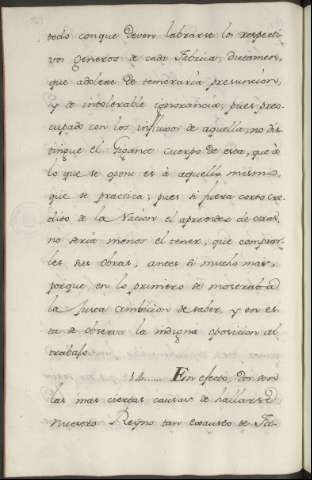 todo con que deven labrarse los respecti
vos generos de cada Fabrica; dictamen,
que adolece de temeraria presuncion,
y de intolerable ignorancia; pues preo
cupado con los influxos de aquella, no dis
tingue el Gigante cuerpo de esta, que à
lo que se opone es à aquella misma
que se practica; pues si fuera corto cre
dito de la Nacion el aprender de otros,
no seria menor el tener, que comprar
les sus obras, antes si mucho mas;
porque en lo primero se mostraba
la justa ambicion de saber, y en es
ta se observa la indigna oposicion al
trabajo.
14...... En efecto, dos son
las mas ciertas causas de hallarse
nuestro Reyno tan exausto de Fa-